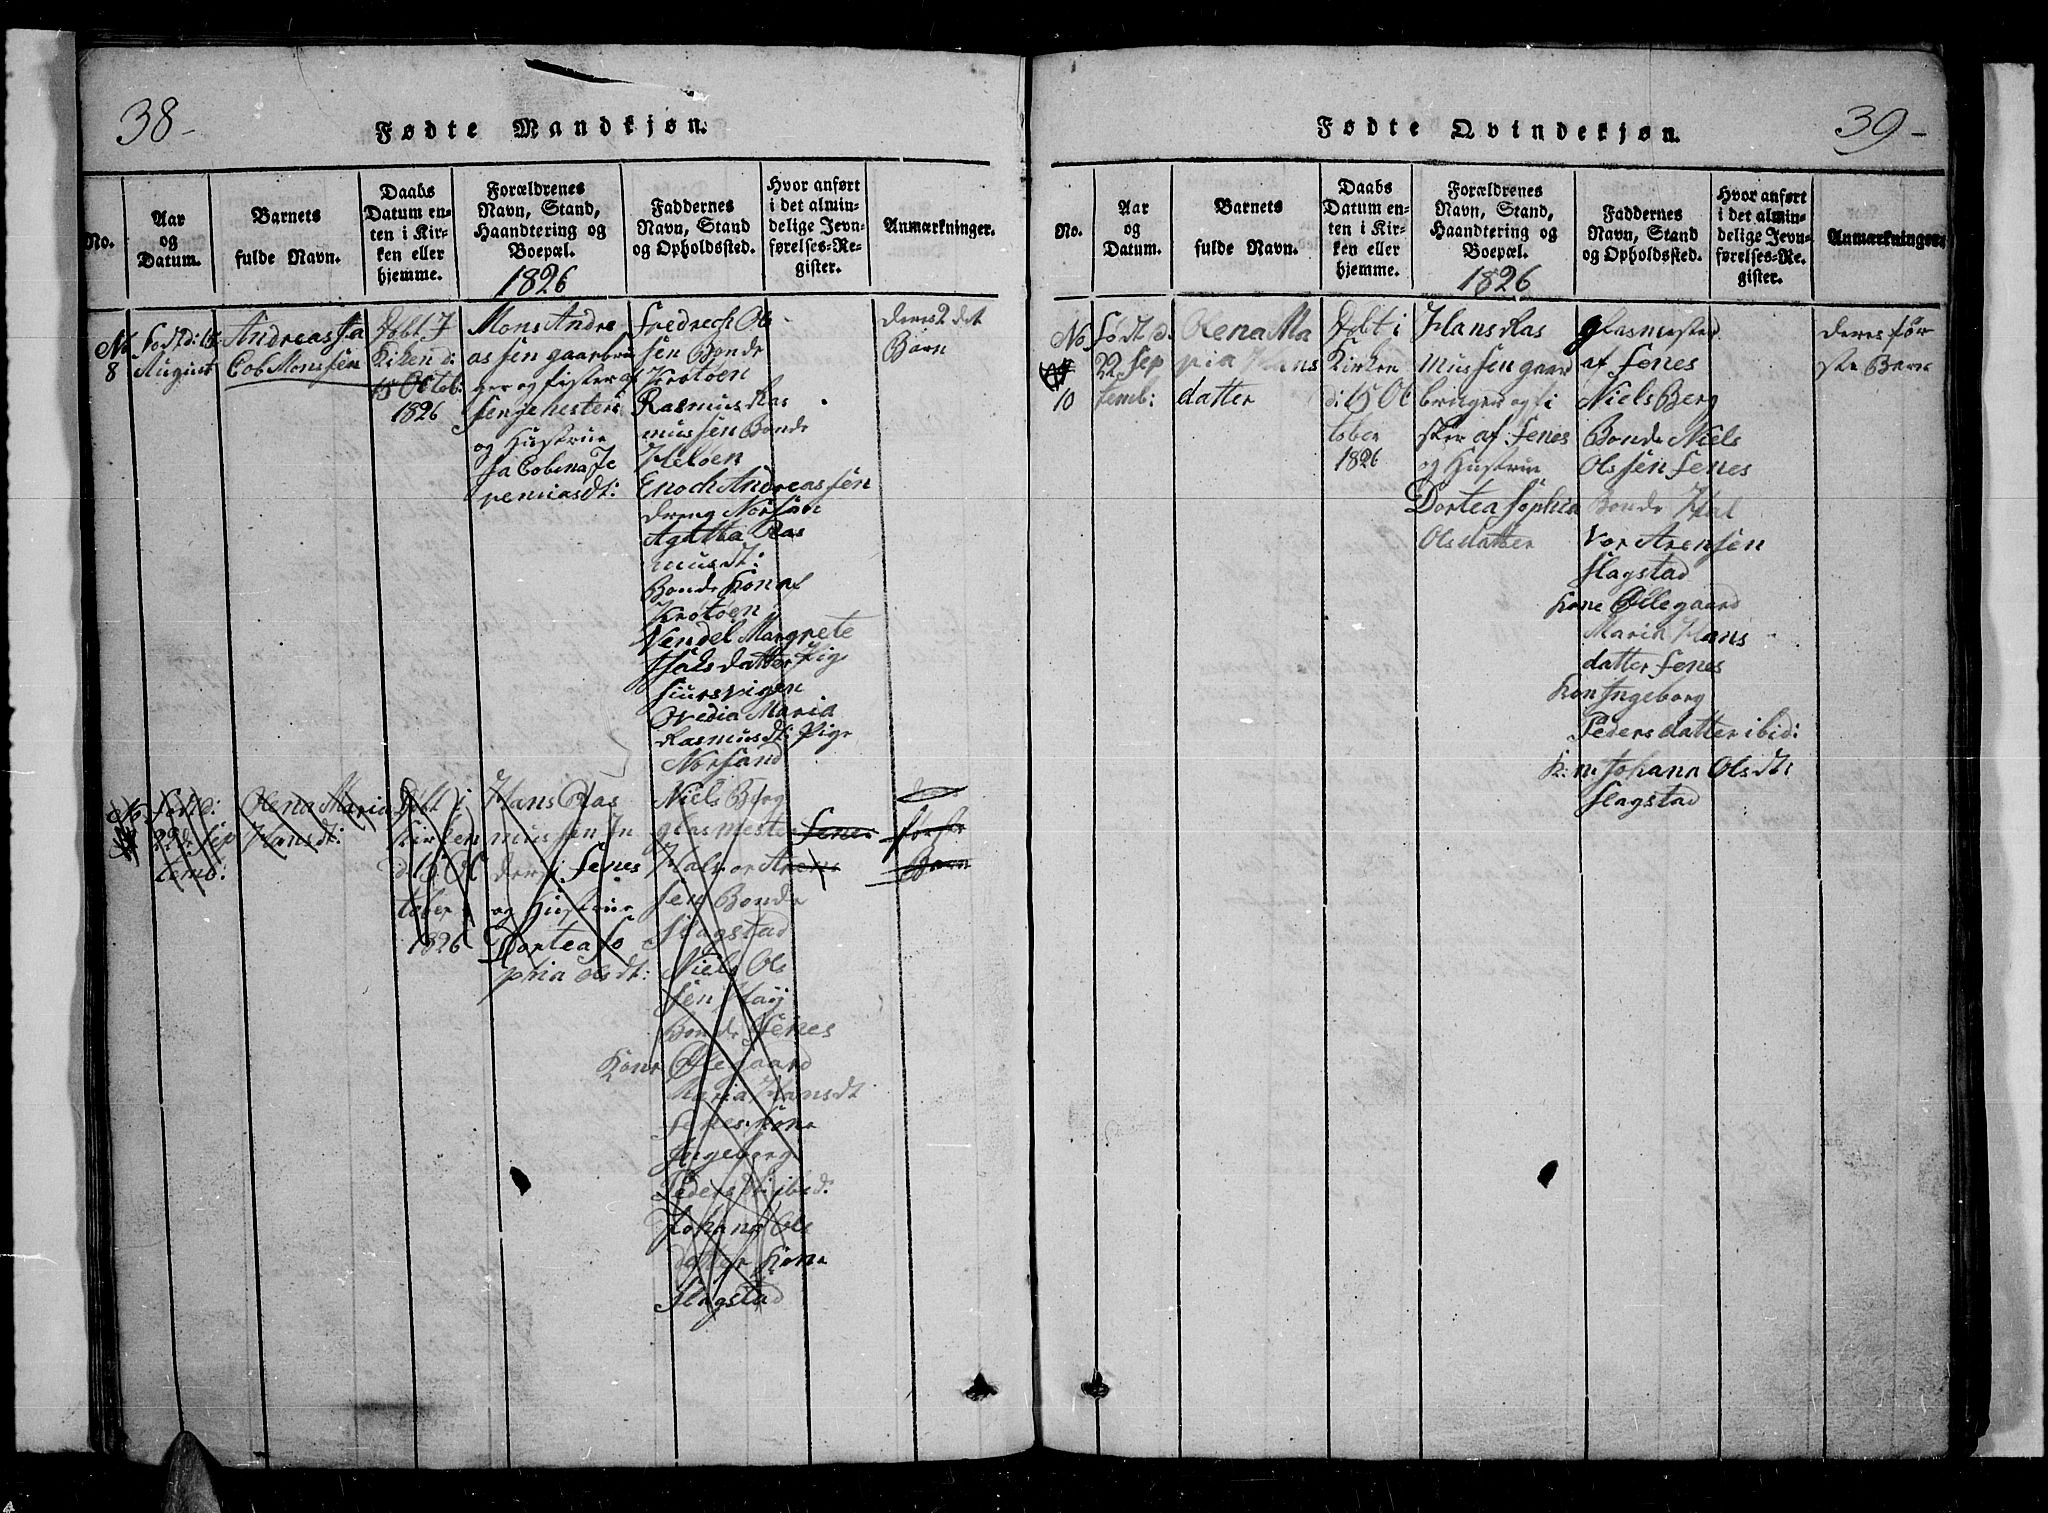 38-
Fødte Mandkjøn.
No.
Aar
og
Datum.
Barnets
fulde Navn.
Daabs
Datum en-
ten i Kir-
ken eller
hjemme.
Forældrenes
Navn, Stand,
Haandtering og
Boepæl.
1826
Faddernes
Navn, Stand
og Opholdssted.
Hvor anført
i det almin-
delige Jevn-
førelses-Re-
gister.
Anmærkninger.
No
8
Født d:
August
Andreas Ja
Cob Monssen
Døbt I
Kirken d:
15 Octob:
1826
Mons Andre
assen gaardbru
ger og fisker af
Sengehesten
og Hustrue
JaCobena Je
remiasdt:
Fredrech Ols
sen Bonde
Krotøen
Rasmus Ras
mussen Bonde
Heløen
Enoch Andreassen
dreng Norsan
Agatha Ras
musdt:
Bonde Kone af
Krotøen
Vendel Margrete
Isaksdatter Pige
Fuursvigen
Ovedia Maria
Rasmusdt: Pige
Norsand
deres 2 det
Barn
No
Født d:
22de Sep
temb:
Olena Maria
Hansdt:
Døbt i
Kirken
d 15 Oc
tober
1826
Hans Ras
mussen In
derst Senes
og Hustrue
Dortea So
phia Olsdt:
Niels Berg
glasmester Senes
Halvor Arens
sen Bonde
Slagstad
Niels Ols
sen
Bonde Senes
Kone Ollegaard
Maria Hansdt
Senes Kone
Ingeborg
Pedersdt: ibid:
Johana Ols
datter Kone
Slagstad
første
Barn
39-
Fødte Qvindekjøn.
No.
Aar
og
Datum.
Barnets
fulde Navn.
Daabs
Datum en-
ten i Kir-
ken eller
hjemme.
Forældrenes
Navn, Stand,
Haandtering og
Boepæl.
1826
Faddernes
Navn, Stand
og Opholdssted.
Hvor anført
i det almin-
delige Jevn-
førelses-Re-
gister.
Anmærkninger.
No
10
Født d.
22 Sep
temb:
Olena Ma
ria Hans
datter
Døbt i
Kirken
d: 15 Oc
tober
1826
Hans Ras
mussen gaard
bruger og fi
sker af Senes
og Hustrue
Dortea Sophia
Olsdatter
glasmester
af Senes
Niels Berg
Bonde Niels
Olssen Senes
Bonde Hal
vor Arensen
Slagstad
Kone Ollegaard
Maria Hans
datter Senes
Kon Ingeborg
Pedersdatter ibid:
K: n: Johana Olsdt:
Slagstad
deres før
ste Barn